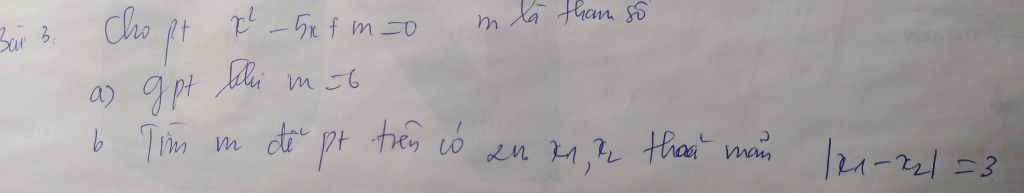 Bài 3. Cho pt x² - 5x + m = 0 m là tham số
a) gpt khi m = 6
b Tìm m để pt trên có 2n x1, x2 thoả mãn |x1 - x2| = 3